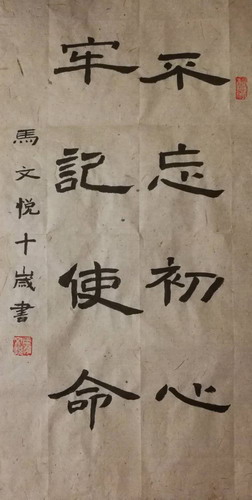 不忘初心
牢记使命
馬文悦十歲書